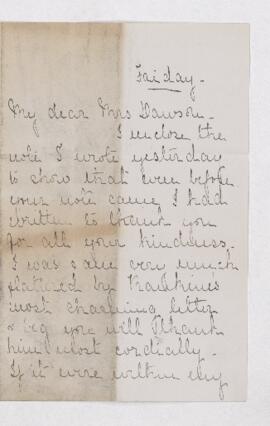 Friday -
My dear Mrs Dawson -
I enclose the
note I wrote yesterday
to show that even before
your note came I had
written to thank you
for all your kindness.
I was very much
flattered by
most charming letter
& beg you will thank
him most cordially -
If it were within my